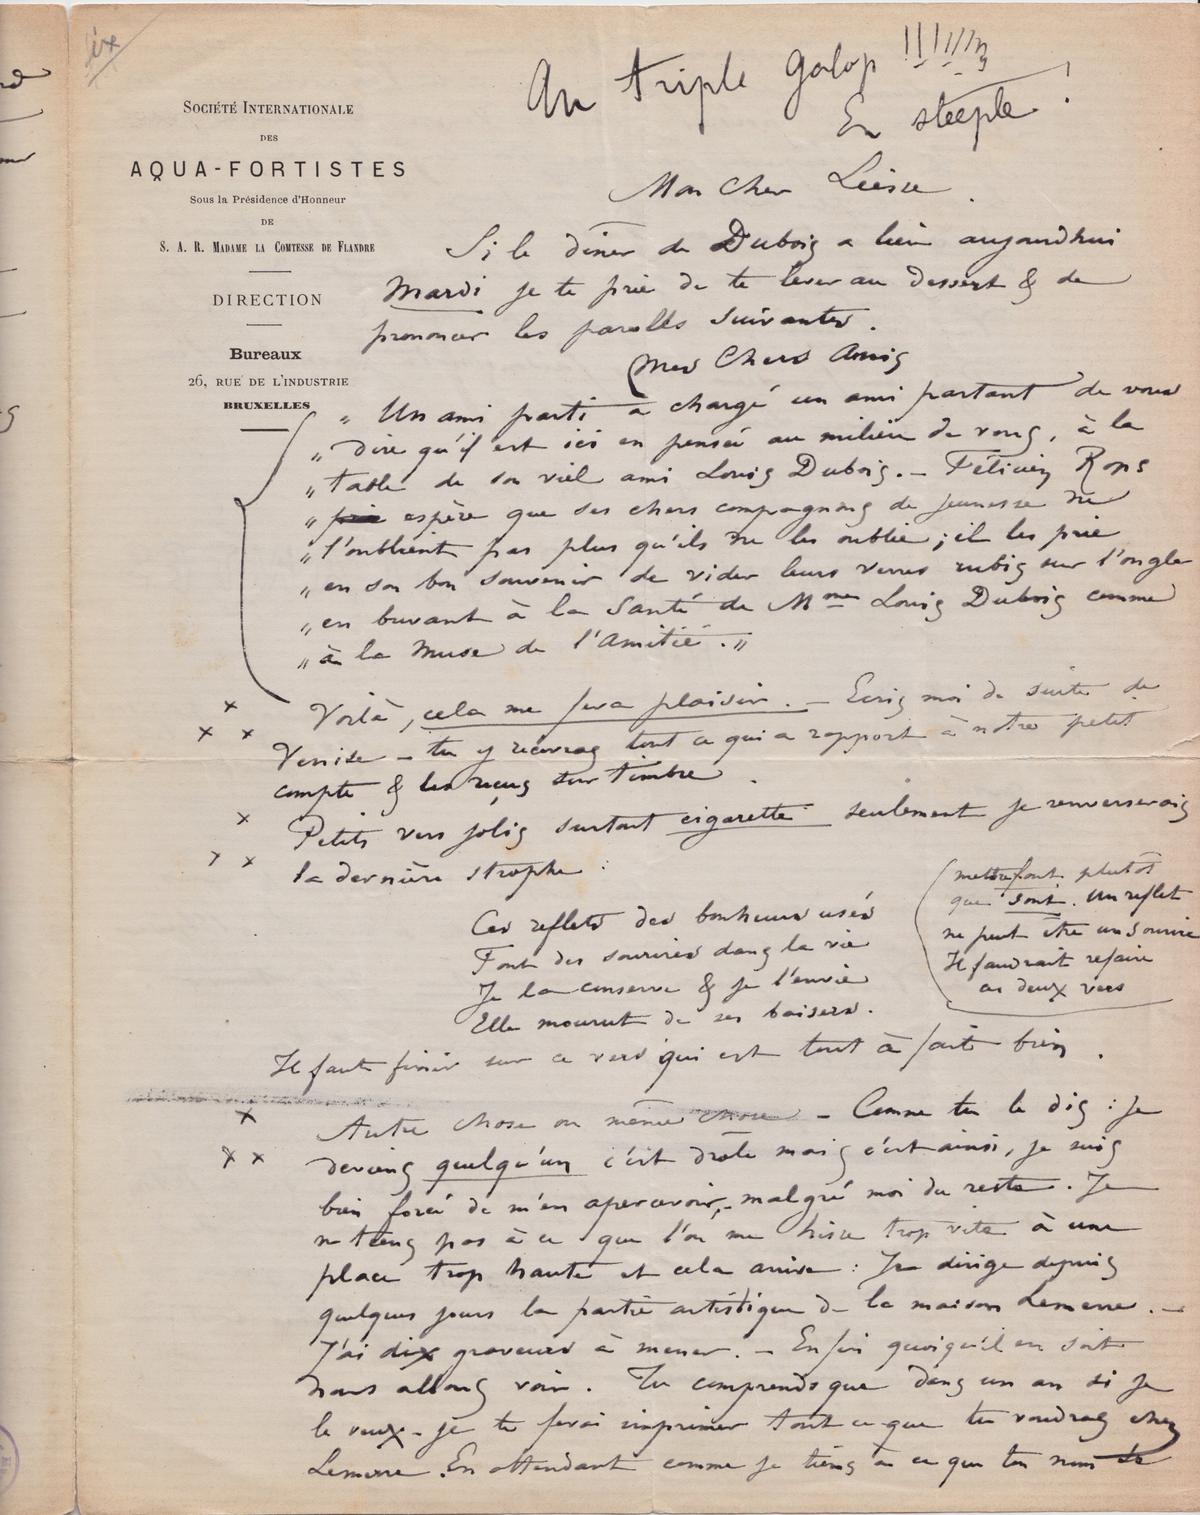 Au triple galop !!!!!!!
En steeple !
SOCIÉTÉ INTERNATIONALE
DES
AQUA-FORTISTES
Sous la Présidence d'Honneur
DE
S. A. R. MADAME LA COMTESSE DE FLANDRE
DIRECTION
Bureaux
26, RUE DE L'INDUSTRIE
BRUXELLES
Mon Cher Liesse
Si le dîner de Dubois a lieu aujourdhui
Mardi je te prie de te lever au dessert & de
prononcer les paroles suivantes.
Mes Chers Amis
" Un ami parti a chargé un ami partant de vous
" dire qu'il est ici en pensée au milieu de vous, à la
" table de son vieil ami Louis Dubois. – Félicien Rops
" prie espère que ses chers compagnons de jeunesse ne
" l'oublient pas plus qu'ils ne les oublie ; il les prie
" en son bon souvenir de vider leurs verres rubis sur l'ongle
" en buvant à la Santé de Mme Louis Dubois comme
" à la Muse de l'Amitié. "
Voilà, cela me fera plaisir. – Ecris moi de suite de
Venise – tu y recevras tout ce qui a rapport à notre petit
compte & les reçus sur timbre.
Petits vers jolis surtout cigarette seulement je renverserais
la dernière strophe :
Ces reflets des bonheurs usés
Font des sourires dans la vie
Je la conserve & je l'envie
Elle mourut de ses baisers.
mettre font plutôt
que sont. Un reflet
ne peut être un sourire
Il faudrait refaire
ces deux vers
Il faut finir sur ce vers qui est tout à fait bien.
Autre chose ou même chose – Comme tu le dis : je
deviens quelqu'un c'est drôle mais c'est ainsi, je suis
bien forcé de m'en apercevoir, – malgré moi du reste. Je
ne tiens pas à ce que l'on me hisse trop vite à une
place trop haute et cela arrive : Je dirige depuis
quelques jours la partie artistique de la maison Lemerre. –
J'ai dix graveurs à mener. – Enfin quoiqu'il en soit
nous allons voir. Tu comprends que dans un an si je
le veux – je te ferai imprimer tout ce que tu voudras chez
Lemerre. En attendant comme je tiens à ce que ton nom se